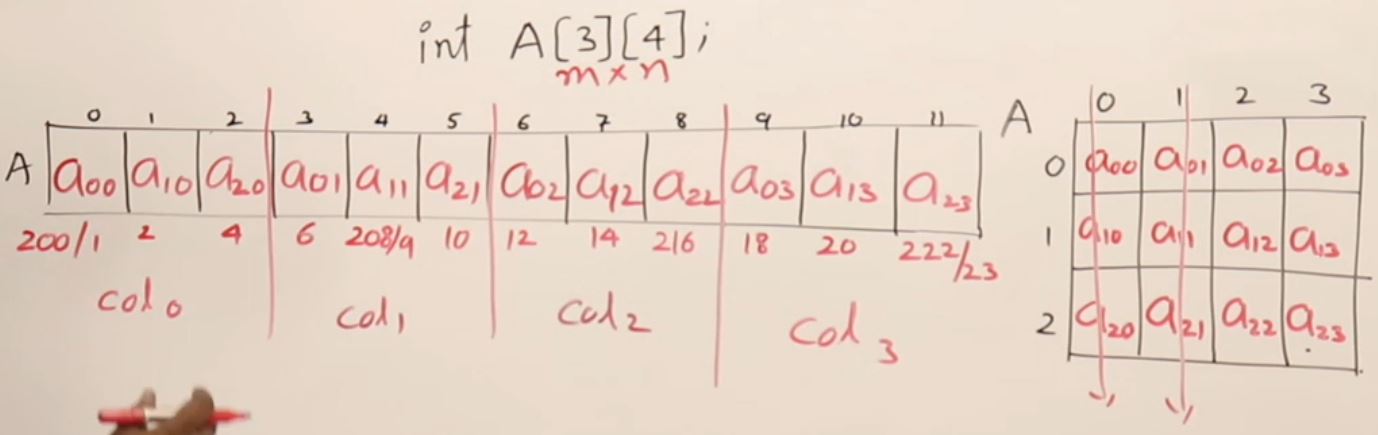 int A[3][4];
m×n
0 1 2 3 4 5 6 7 8 9 10 11
A a₀₀ a₁₀ a₂₀ a₀₁ a₁₁ a₂₁ a₀₂ a₁₂ a₂₂ a₀₃ a₁₃ a₂₃
200/1 2 4 6 208/9 10 12 14 216 18 20 222/23
col₀ col₁ col₂ col₃
A 0 1 2 3
0 a₀₀ a₀₁ a₀₂ a₀₃
1 a₁₀ a₁₁ a₁₂ a₁₃
2 a₂₀ a₂₁ a₂₂ a₂₃